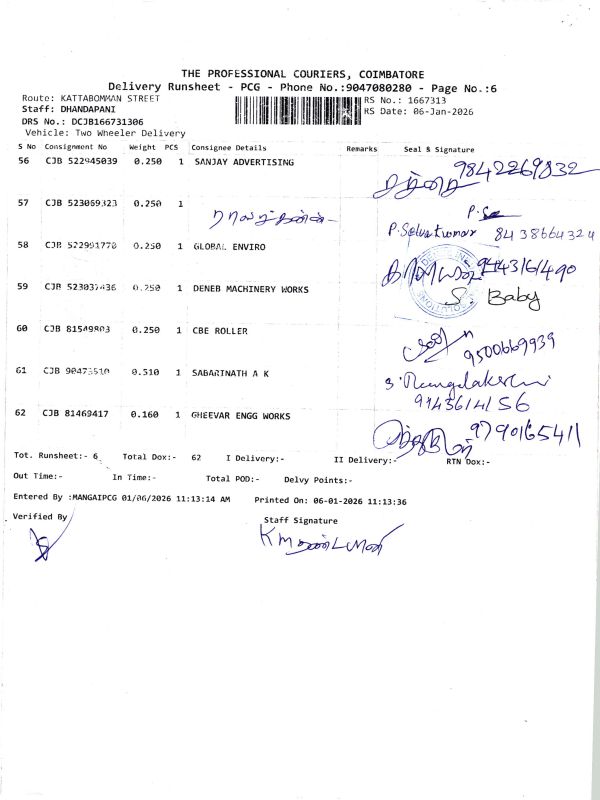 THE PROFESSIONAL COURIERS, COIMBATORE
Delivery Runsheet - PCG - Phone No.:9047080280 - Page No.:6
Route: KATTABOMMAN STREET RS No.: 1667313
Staff: DHANDAPANI RS Date: 06-Jan-2026
DRS No.: DCJB166731306
Vehicle: Two Wheeler Delivery
S No Consignment No Weight PCS Consignee Details Remarks Seal & Signature
56 CJB 522945039 0.250 1 SANJAY ADVERTISING 9842269832
57 CJB 523069323 0.250 1
P.Selvakumar 8438664324
58 CJB 522991770 0.250 1 GLOBAL ENVIRO 9443161490
59 CJB 0.250 1 DENEB MACHINERY WORKS S. Baby
60 CJB 81549803 0.250 1 CBE ROLLER 9500669939
61 CJB 90473510 0.510 1 SABARINATH A K
62 CJB 81469417 0.160 1 GHEEVAR ENGG WORKS 9790165411
Tot. Runsheet:- 6 Total Dox:- 62 I Delivery:- II Delivery:- RTN Dox:-
Out Time:- In Time:- Total POD:- Delvy Points:-
Entered By :MANGAIPCG 01/06/2026 11:13:14 AM Printed On: 06-01-2026 11:13:36
Verified By Staff Signature